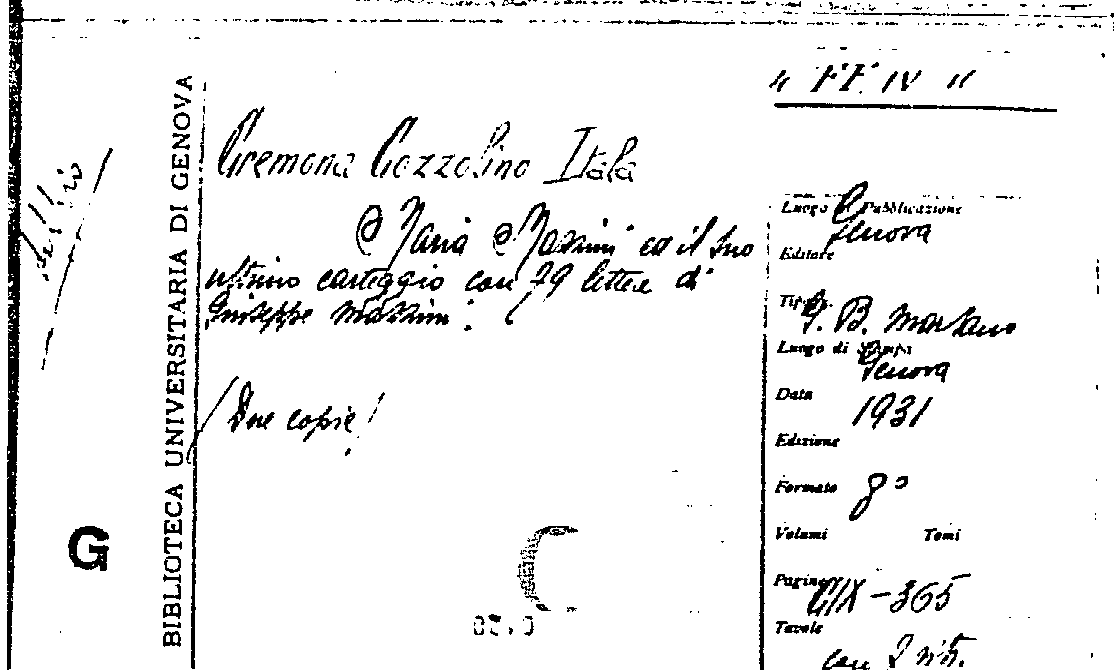 " FF. IV "
BIBLIOTECA UNIVERSITARIA DI GENOVA
G
Cremona Cozzolino Itala
Maria Mazzini ed il suo
ultimo carteggio con 29 lettere di
Giuseppe Mazzini.
/Due copie/
Luogo di Pubblicazione
Genova
Editore
Tipogr.
G. B. Marsano
Luogo di Stampa
Genova
Data
1931
Edizione
Formato 8°
Volumi Tomi
Pagine CIX-365
Tavole
con 2 ritr.